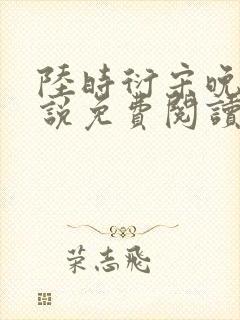 陸時衍宋晚
說免費閱讀
荣志飛